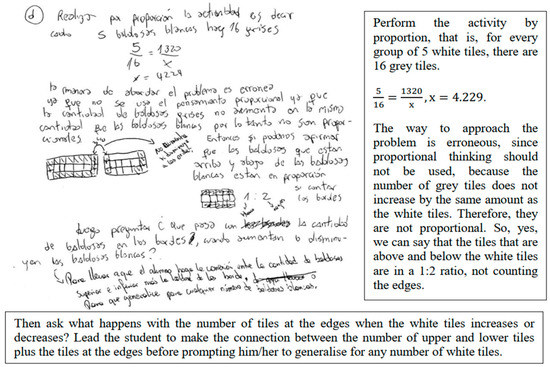 d) Realiza por proporción la actividad es decir
cada 5 baldosas blancas hay 16 grises
5/16 = 1320/x
x = 4224
la manera de abordar el problema es erronea
ya que no se usa el pensamiento proporcional ya que
la cantidad de baldosas grises no aumenta en la misma
cantidad que las baldosas blancas por lo tanto no son propor-
cionales
Entonces si podemos afirmar
que las baldosas que estan
arriba y abajo de las baldosas
blancas estan en proporción
1:2 sin contar
los bordes
luego preguntar ¿que pasa con la cantidad
de baldosas en los bordes?, cuando aumentan o disminu-
yen las baldosas blancas?
Para llevar a que el alumno haga la conexión entre la cantidad de baldosas
superior e inferior más la baldosa de los bordes,
Para que generalice para cualquier número de baldosas blancas.
Perform the activity by
proportion, that is, for every
group of 5 white tiles, there are
16 grey tiles.
5/16 = 1320/x, x = 4.229.
The way to approach the
problem is erroneous, since
proportional thinking should
not be used, because the
number of grey tiles does not
increase by the same amount as
the white tiles. Therefore, they
are not proportional. So, yes,
we can say that the tiles that are
above and below the white tiles
are in a 1:2 ratio, not counting
the edges.
Then ask what happens with the number of tiles at the edges when the white tiles increases or
decreases? Lead the student to make the connection between the number of upper and lower tiles
plus the tiles at the edges before prompting him/her to generalise for any number of white tiles.